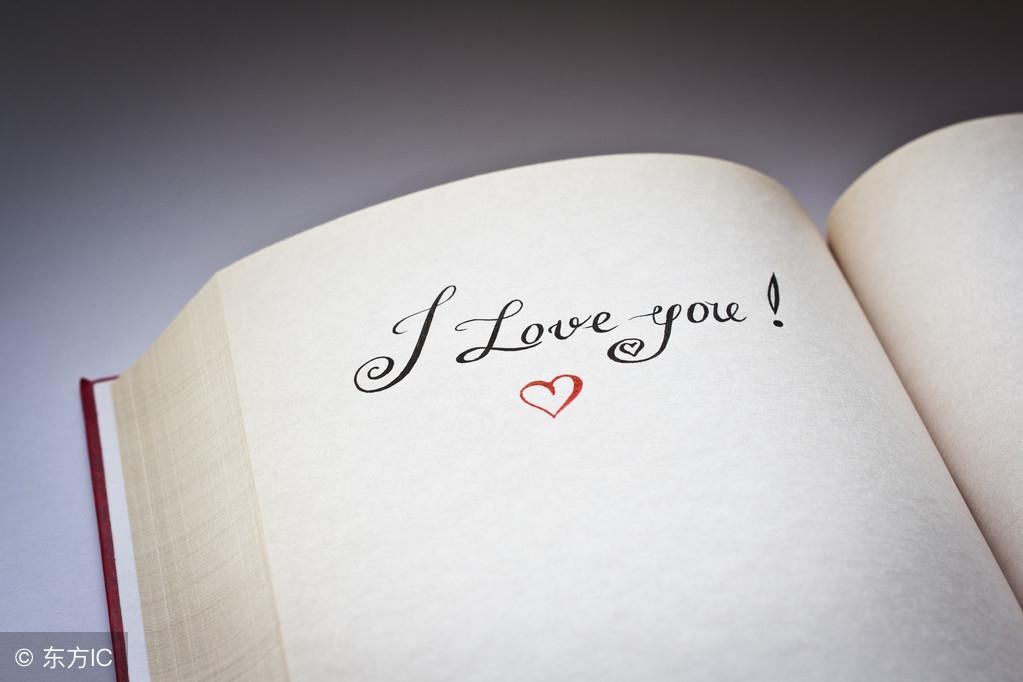 I Love you !
© 东方IC